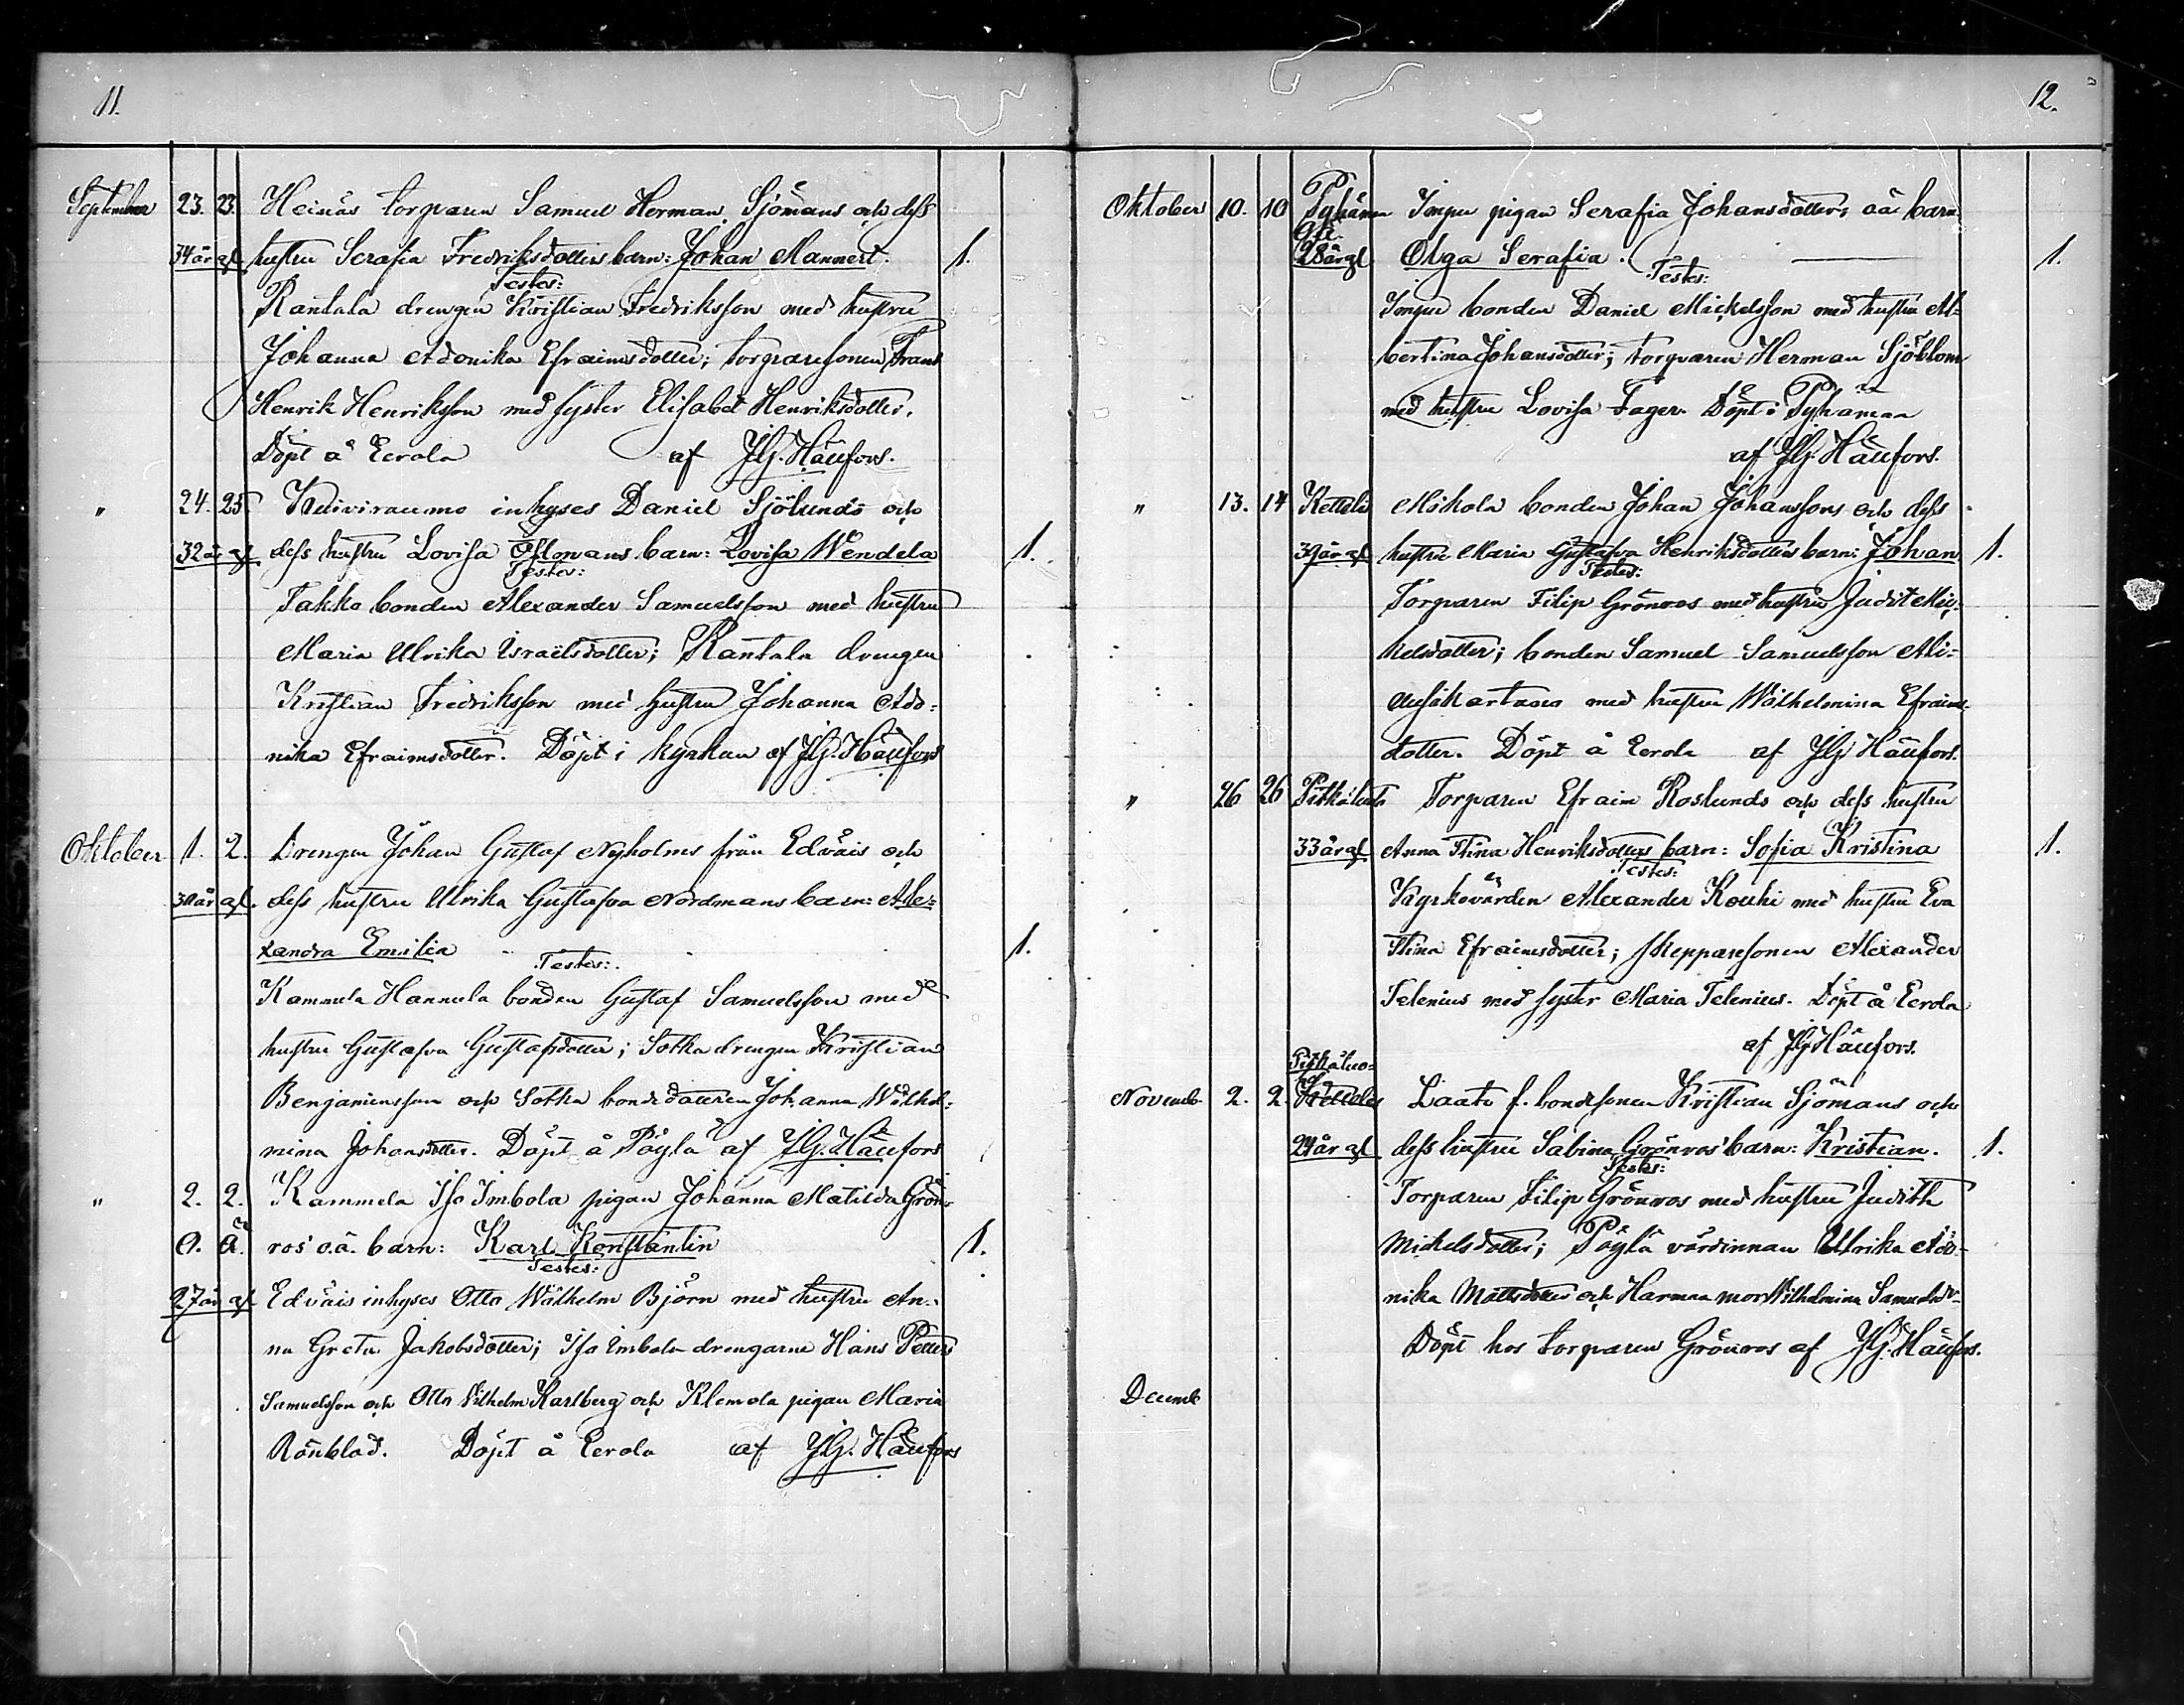 11.
September 23. 23. Heinäs torparen Samuel Herman Sjömans och dess
34 år gl. hustru Serafia Fredriksdotters barn: Johan Mannert. 1.
Testes:
Rantala drengen Kristian Fredriksson med hustru
Johanna Adonika Efraimsdotter; torparesonen Frans
Henrik Henriksson med syster Elisabet Henriksdotter.
Döpt å Eerola af
" 24. 25. inhyses Daniel Sjölunds och
32 år gl. dess hustru Lovisa Östmans barn: Lovisa Wendela 1.
Testes:
Takko bonden Alexander Samuelsson med hustru
Maria Ulrika Israelsdotter; Rantala drengen
Kristian Fredriksson med hustru Johanna Ado-
nika Efraimsdotter. Döpt i kyrkan af
Oktober 1. 2. Drengen Johan Gustaf Nyholms från Edväis och
år gl. dess hustru Ulrika Gustafva Nordmans barn: Ale-
xandra Emilia 1.
Testes:
Kammela Hannula bonden Gustaf Samuelsson med
hustru Gustafva Gustafsdotter; Sotka drengen Kristian
Benjaminsson och Sotka bondedottren Johanna Wilhel-
mina Johansdotter. Döpt å Pöylä af
" 2. 2. Kammela Iso Imbola pigan Johanna Matilda Grön-
O. Ä. ros' o.ä. barn: Karl Konstantin 1.
Testes:
27 år gl. Edväis inhyses Otto Wilhelm Björn med hustru An-
na Greta Jakobsdotter; Iso Imbola drengarne Hans Petter
Samuelsson och Otto Vilhelm Karlberg och Klemola pigan Maria
Rönblad. Döpt å Eerola af
12.
Oktober 10. 10 Pyhämaa pigan Serafia Johansdotters oä. barn
28 år gl. Olga Serafia. 1.
Testes:
bonden Daniel Mickelsson med hustru Al-
bertina Johansdotter; torparen Herman Sjöblom
med hustru Lovisa Fager. Döpt i Pyhämaa
af
" 13. 14 Kettele Mikola bonden Johan Johanssons och dess
39 år gl. hustru Maria Gustafva Henriksdotters barn: Johan 1.
Testes:
Torparen Filip Grönroos med hustru Judit Mic-
kelsdotter; bonden Samuel Samuelsson Ali-
med hustru Wilhelmina Efraims-
dotter. Döpt å Eerola af
" 26 26 Torparen Efraim Roslunds och dess hustru
33 år gl. Anna Stina Henriksdotters barn: Sofia Kristina 1.
Testes:
Kyrkovärden Alexander Kouhi med hustru Eva
Stina Efraimsdotter; skepparesonen Alexander
Telenius med syster Maria Telenius. Döpt å Eerola
af
Novemb. 2. 2. Laato f. bondesonen Kristian Sjömans och
år gl. dess hustru Sabina Grönroos' barn: Kristian. 1.
Testes:
Torparen Filip Grönroos med hustru Judith
Mickelsdotter; Pöylä värdinnan Ulrika Ado-
nika Mattsdotter och Harmaa mor Wilhelmina Samuelsdr
Döpt hos torparen Grönroos af
Decemb